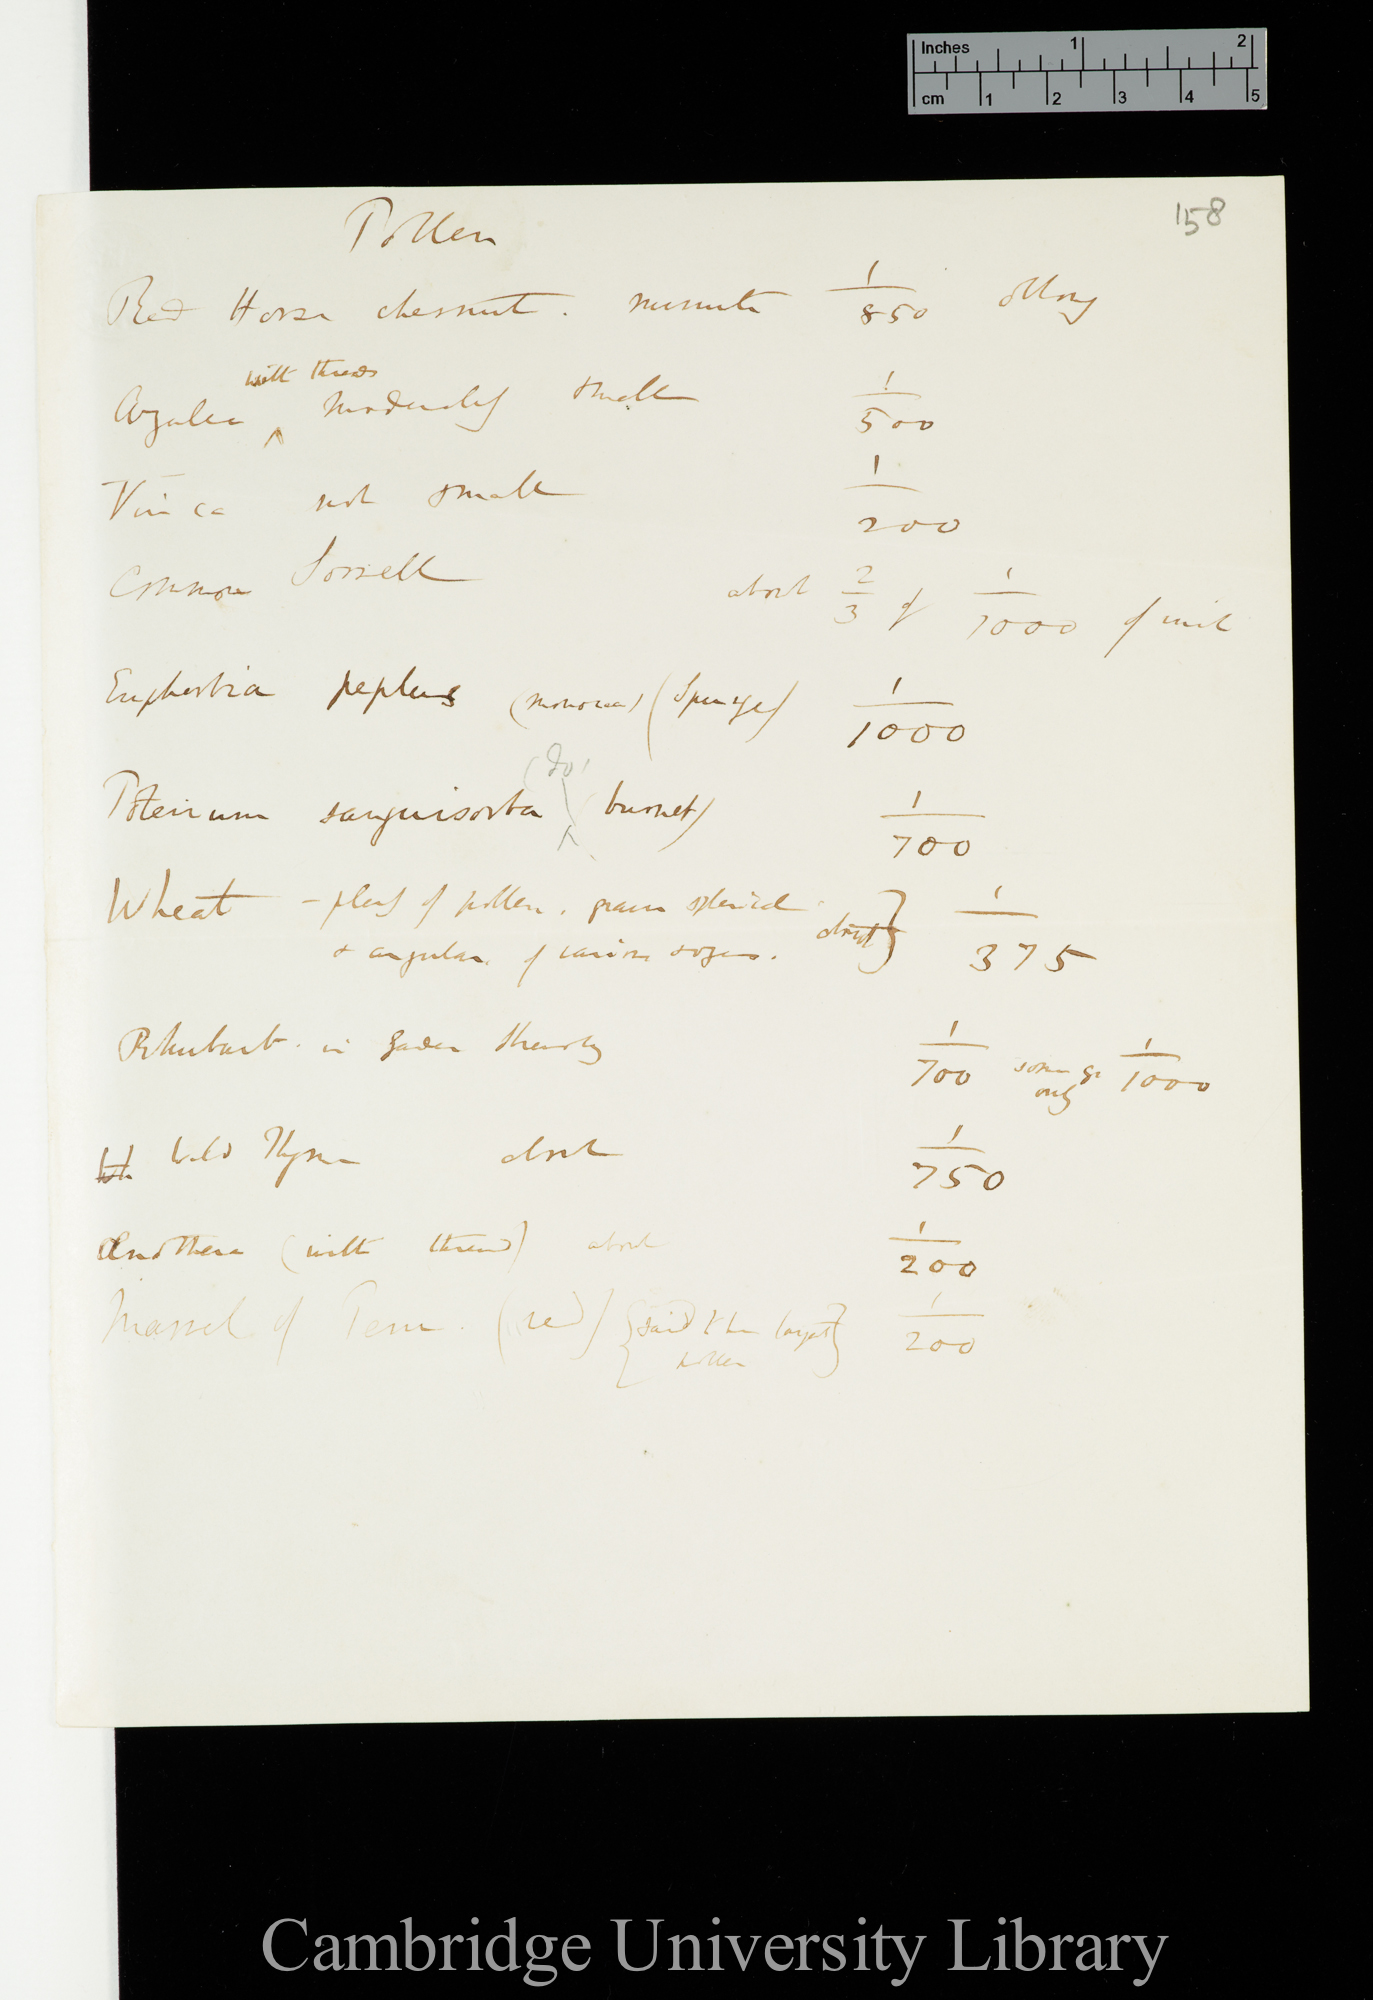 Inches 1 2
cm 1 2 3 4 5
158
Pollen
Red Horse chesnut. minute 1/850 oblong
with threads
Azalea ^ moderately small 1/500
Vinca not small 1/200
Common Sorrell about 2/3 of 1/1000 of inch
Euphorbia peplus (monoec) (Spurge) 1/1000
(do)
Poterium sanguisorba (burnet) 1/700
Wheat – plenty of pollen. grains spherical
& angular. of various sizes. about} 1/375
Rhubarb. in garden 1/700 some gr only 1/1000
Wild Thyme about 1/750
Œnothera (with thread) about 1/200
Marvel of Peru. (red) {said to be largest pollen} 1/200
Cambridge University Library